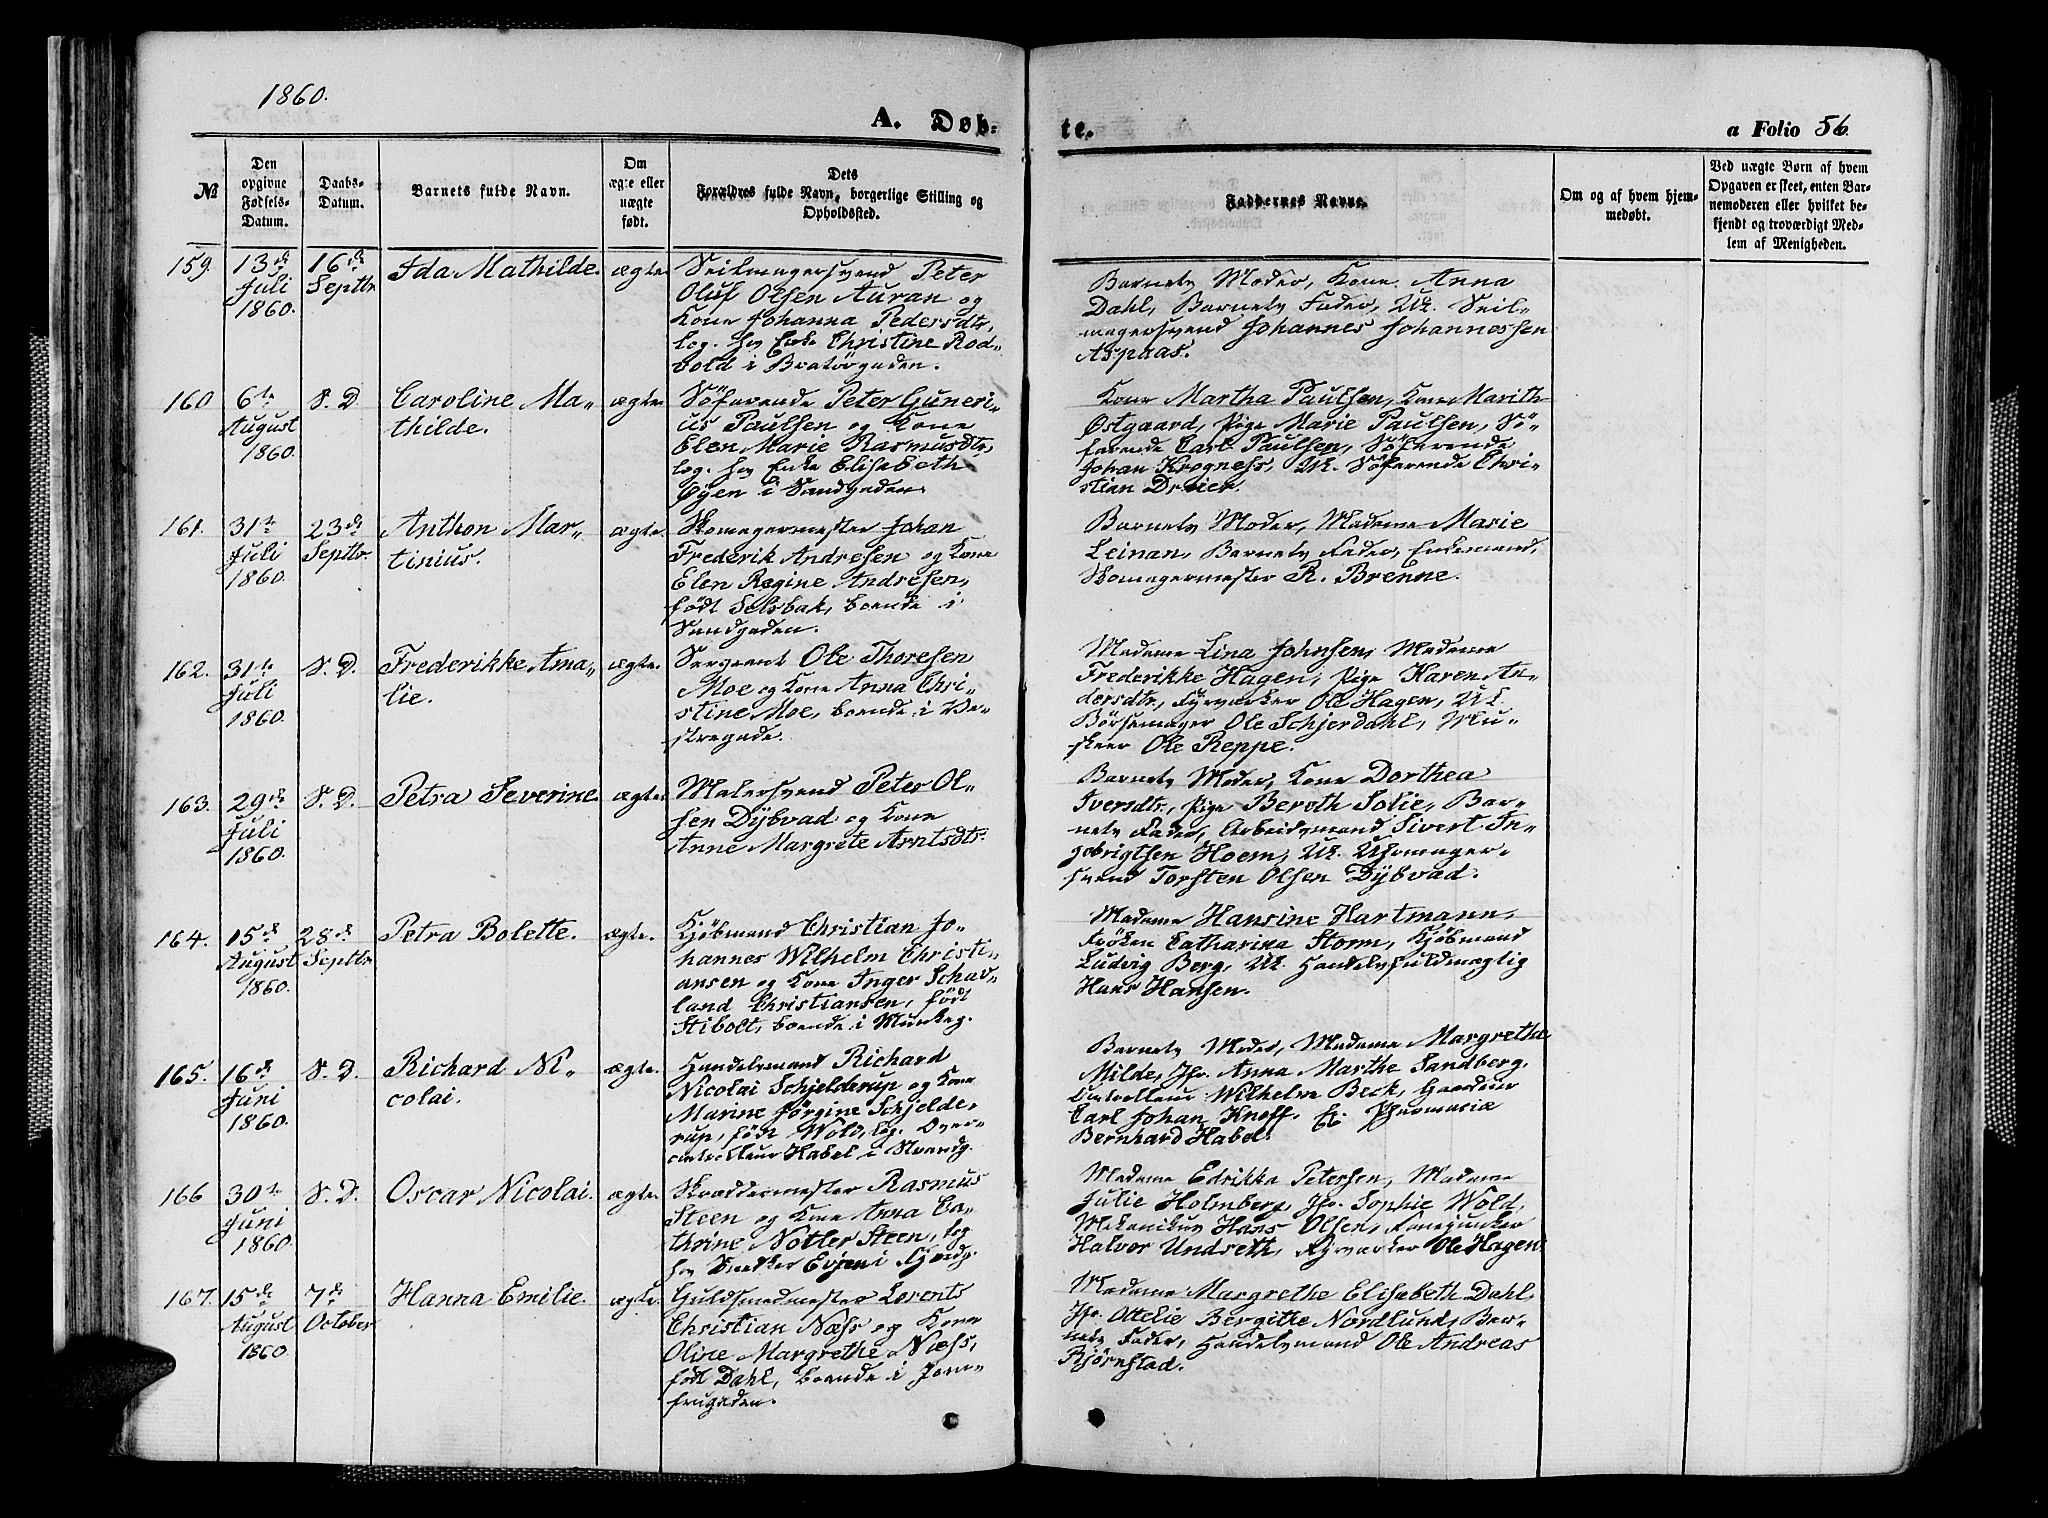 1860.
A. Døb-
te.
a Folio 56
№
Den opgivne Fødsels-Datum.
Daabs-Datum.
Barnets fulde Navn.
Om ægte eller uægte født.
Dets Forældres fulde Navn, borgerlige Stilling og Opholdssted.
Faddernes Navne.
Om og af hvem hjemmedøbt.
Ved uægte Børn af hvem
Opgaven er skeet, enten Bar-
nemoderen eller hvilket be-
kjendt og troværdigt Med-
lem af Menigheden.
159. 13de Juli 1860. 16de Septbr Ida Mathilde. ægte.
Seilmagersvend Peter
Oluf Olsen Auran og
Kone Johanna Pedersdtr,
log. hos Enke Christine Rod-
bold i Bratørgaden.
Barnets Moder, Kone Anna
Dahl, Barnets Fader, Uk. Seil-
magersvend Johannes Johannessen
Aspaas.
160 6te August 1860. S. D. Caroline Ma-
thilde. ægte
Søfarende Peter Guneri-
us Paulsen og Kone
Elen Marie Rasmusdtr,
log. hos Enke Elisabeth
Øyen i Sandgaden.
Kone Martha Paulsen, Kone Marith
Østgaard, Pige Marie Paulsen, Sø-
farende Carl Paulsen, Søfarende
Johan Krogness, Uk. Søfarende Chri-
stian Dreier.
161. 31te Juli 1860. 23de Septbr. Anthon Mar-
tinius. ægte.
Skomagermester Johan
Frederik Andresen og Kone
Elen Regine Andresen,
født Selsbak, boende i
Sandgaden.
Barnets Moder, Madame Marie
Leinan, Barnets Fader, Enkemand,
Skomagermester R. Brenne.
162. 31te Juli 1860. S. D. Frederikke Ama-
lie. ægte.
Sergeant Ole Thoresen
Moe og Kone Anna Chri-
stine Moe, boende i Ve-
stregade.
Madame Lina Johnsen, Madame
Frederikke Hagen, Pige Karen An-
dersdtr, Fyrværker Ole Hagen, Uk.
Børsemager Ole Schjerdahl, Mu-
skeer Ole Reppe.
163. 29de Juli 1860. S. D. Petra Severine. ægte.
Malersvend Peter Ol-
sen Dybvad og Kone
Anne Margrete Arntsdtr.
Barnets Moder, Kone Dorthea
Iversdtr, Pige Beroth Solie, Bar-
nets Fader, Arbeidsmand Sivert In-
gebrigtsen Hoem, Uk. Uhrmager-
svend Torsten Olsen Dybvad.
164. 15de August 1860. 28de Septbr Petra Bolette. ægte.
Kjøbmand Christian Jo-
hannes Wilhelm Christi-
ansen og Kone Inger Schav-
land Christiansen, født
Stibolt, boende i Munkeg.
Madame Hansine Hartmann,
Frøken Catharina Storm, Kjøbmand
Ludvig Berg, Uk. Handelsfuldmægtig
Hans Hansen.
165. 16de Juni 1860. S. D. Richard Ni-
colai. ægte.
Handelsmand Richard
Nicolai Schjelderup og Kone
Marine Jørgine Schjelde-
rup, født Wold, log. Over-
controlleur Habel i Strandg.
Barnets Moder, Madame Margretha
Milde, Jfr. Anna Marthe Sandberg,
Controlleur Wilhelm Beck, Gaardeier
Carl Johan Knoff, Ex. Pharmacia
Bernhard Habel.
166 30te Juni 1860. S. D. Oscar Nicolai. ægte.
Skræddermester Rasmus
Steen og Kone Anna Ca-
thrine Notler Steen, log
hos Snedker Evjen i Kjøbdg.
Madame Edrikka Petersen, Madame
Julie Holmberg, Jfr. Sophie Wold,
Mekanikus Hans Olsen, Fanejunker
Halvor Undseth, Fyrværker Ole Hagen.
167. 15de August 1860. 7de October Hanna Emilie. ægte.
Guldsmedmester Lorents
Christian Næss og Kone
Oline Margrethe Næss,
født Dahl, boende i Jom-
frugaden.
Madame Margrethe Elisabeth Dahl,
Jfr. Ottelie Bergithe Nordlund, Bar-
nets Fader, Handelsmand Ole Andreas
Bjørnstad.